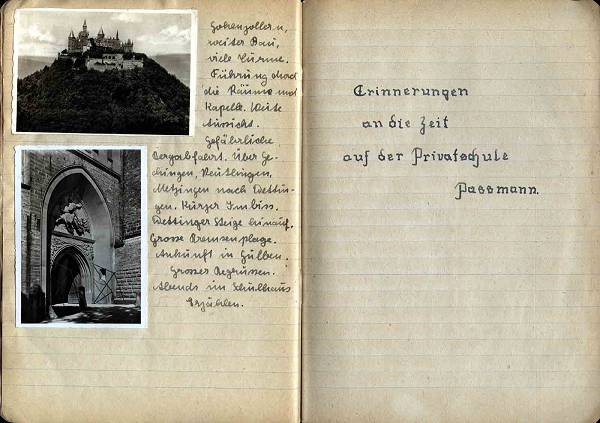 Hohenzollern,
weiter Bau,
viele Türme.
Führung durch
die Räume und
Kapelle. Weite
Aussicht.
Gefährliche
Bergabfahrt. Über He-
chingen, Reutlingen,
Metzingen nach Dettin-
gen. Kurzer Imbiss.
Dettinger Steige hinauf.
Grosse Bremsenplage.
Ankunft in Gülben.
Grosses Begrüssen.
Abends im Schulhaus
Erzählen.
Erinnerungen
an die Zeit
auf der Privatschule
Passmann.